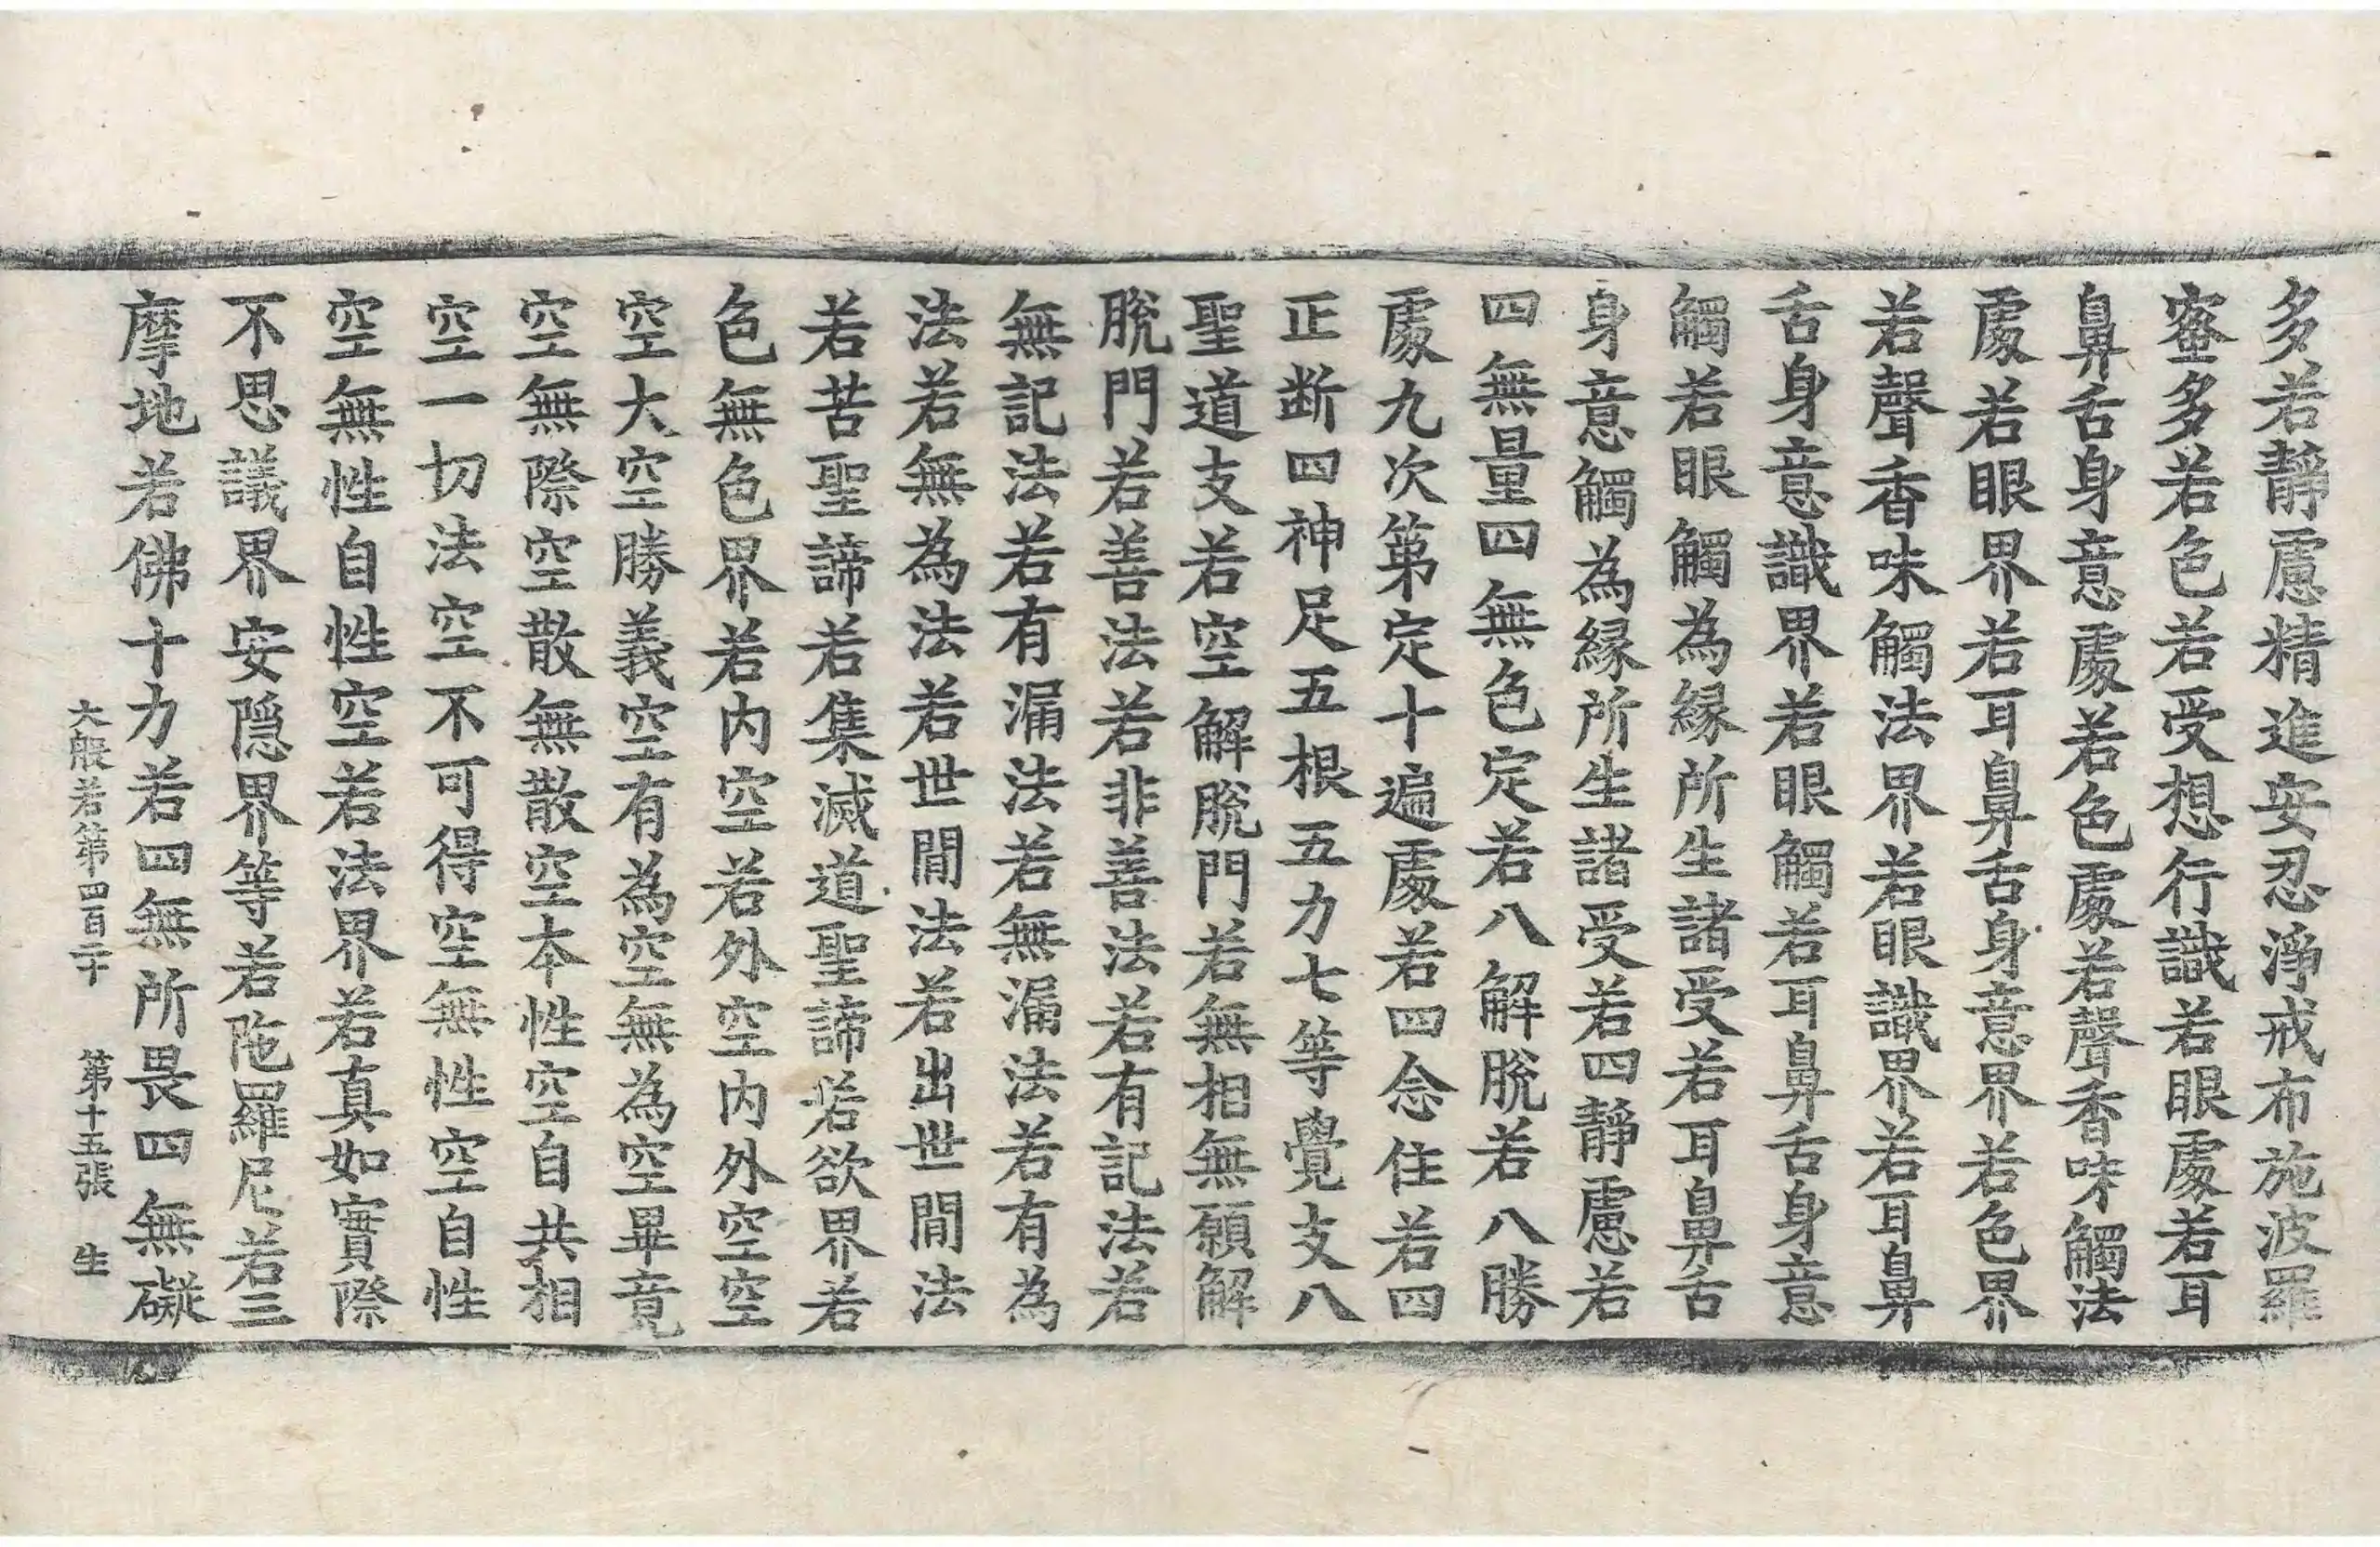 多若靜慮精進安忍淨戒布施波羅
蜜多若色若受想行識若眼處若耳
鼻舌身意處若色處若聲香味觸法
處若眼界若耳鼻舌身意界若色界
若聲香味觸法界若眼識界若耳鼻
舌身意識界若眼觸若耳鼻舌身意
觸若眼觸為緣所生諸受若耳鼻舌
身意觸為緣所生諸受若四靜慮若
四無量四無色定若八解脫若八勝
處九次第定十遍處若四念住若四
正断四神足五根五力七等覺支八
聖道支若空解脫門若無相無願解
脫門若善法若非善法若有記法若
無記法若有漏法若無漏法若有為
法若無為法若世間法若出世間法
若苦聖諦若集滅道聖諦若欲界若
色無色界若内空若外空内外空空
空大空勝義空有為空無為空畢竟
空無際空散無散空本性空自共相
空一切法空不可得空無性空自性
空無性自性空若法界若真如實際
不思議界安隱界等若陁羅尼若三
摩地若佛十力若四無所畏四無礙
大般若第四百二十　第十五張　生